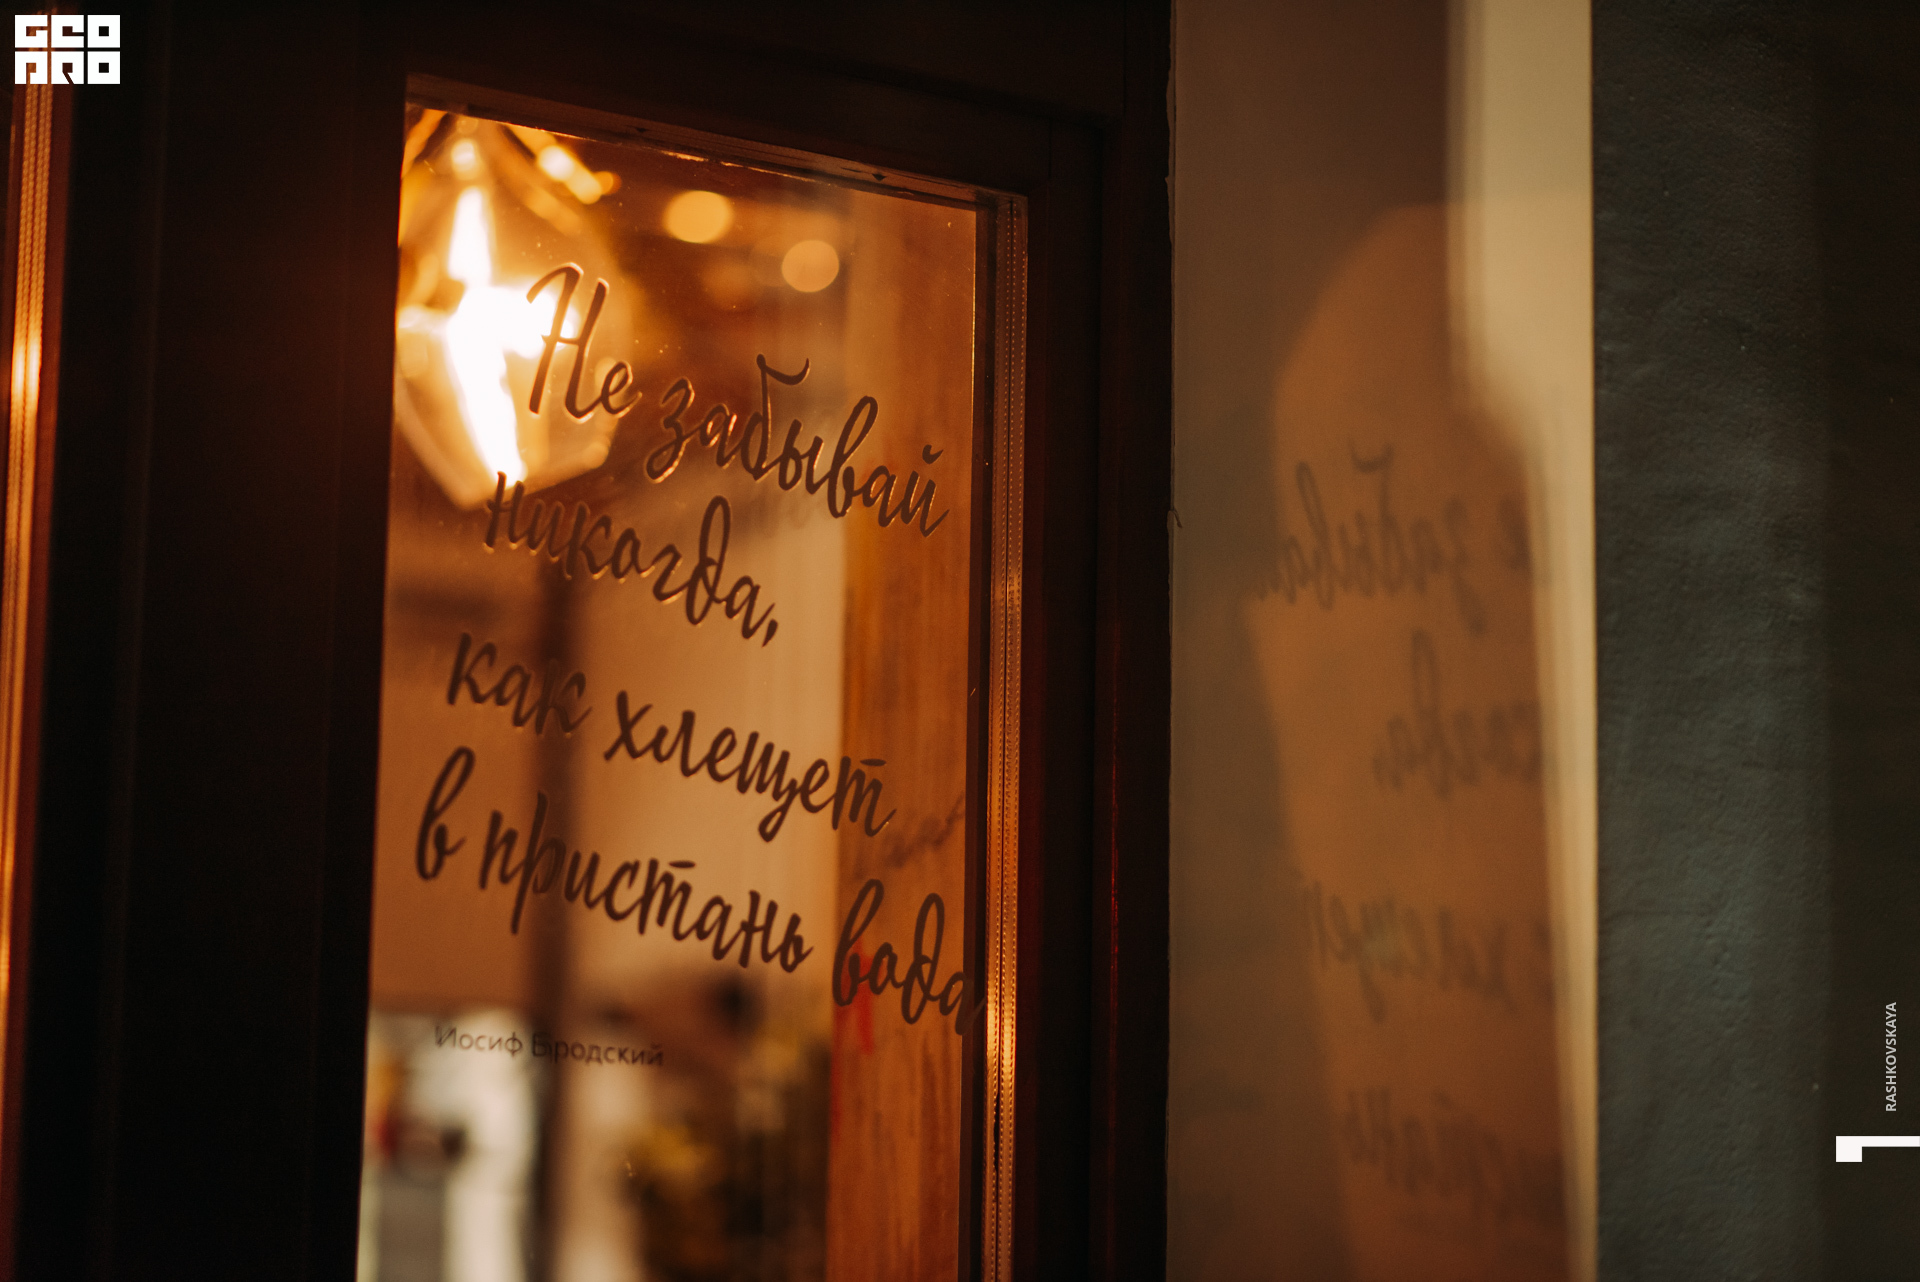 GEO
PRO
Не забывай
никогда,
как хлещет
в пристань вода
Иосиф Бродский
RASHKOVSKAYA